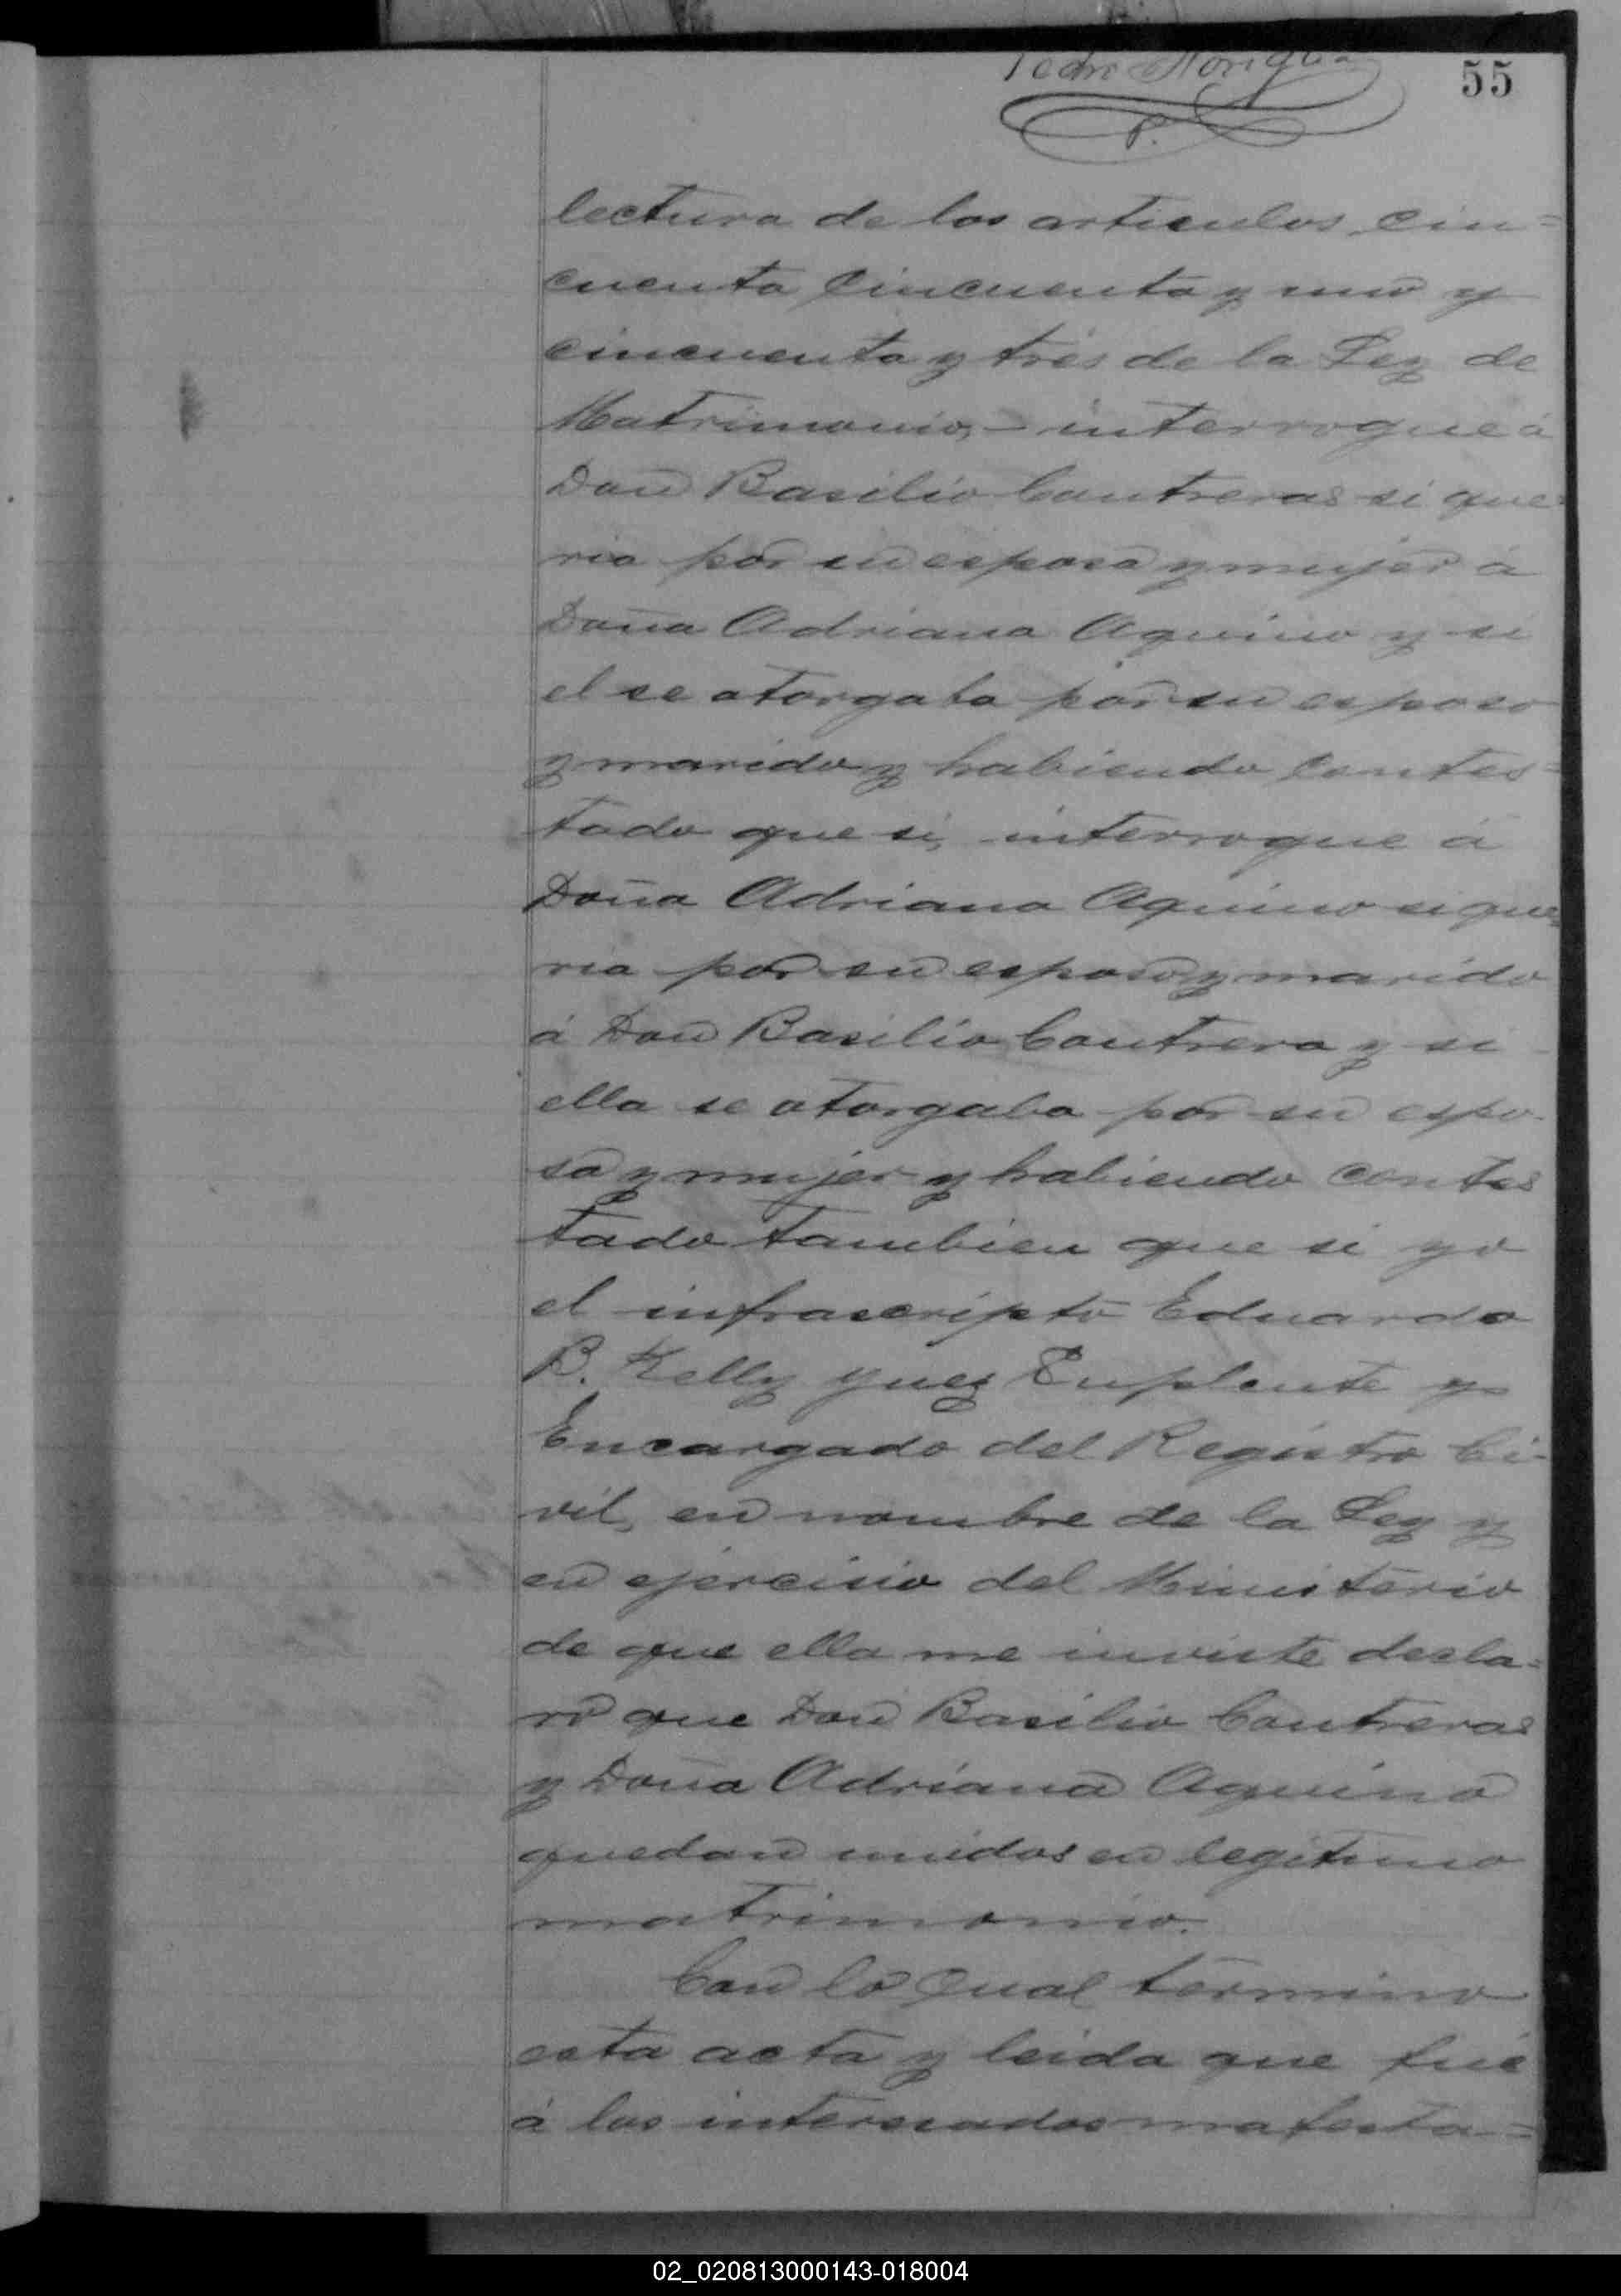 55
Pedro Noriglia
P.
lectura de los articulos cin=
cuenta cincuenta y uno y
cincuenta y tres de la Ley de
Matrimonio, - interrogue á
Don Basilio Contreras si que
ria por su esposa y mujer á
Doña Adriana Aquino y si
el se otorgaba por su esposo
y marido y habiendo contes=
tado que si, interrogue á
Doña Adriana Aquino si que
ria por su esposo y marido
á Don Basilio Contrera y si
ella se otorgaba por su espo-
sa y mujer y habiendo contes
tado tambien que si yo
el infrascripto Eduardo
B. Kelly Juez Suplente y
Encargado del Registro Ci-
vil, en nombre de la Ley y
en ejercisio del Ministerio
de que ella me inviste decla=
ro que Don Basilio Contreras
y Doña Adriana Aquino
quedan unidos en legitimo
matrimonio.
Con lo qual termino
esta acta y leida que fué
á los interesados mafesta=
02_020813000143-018004